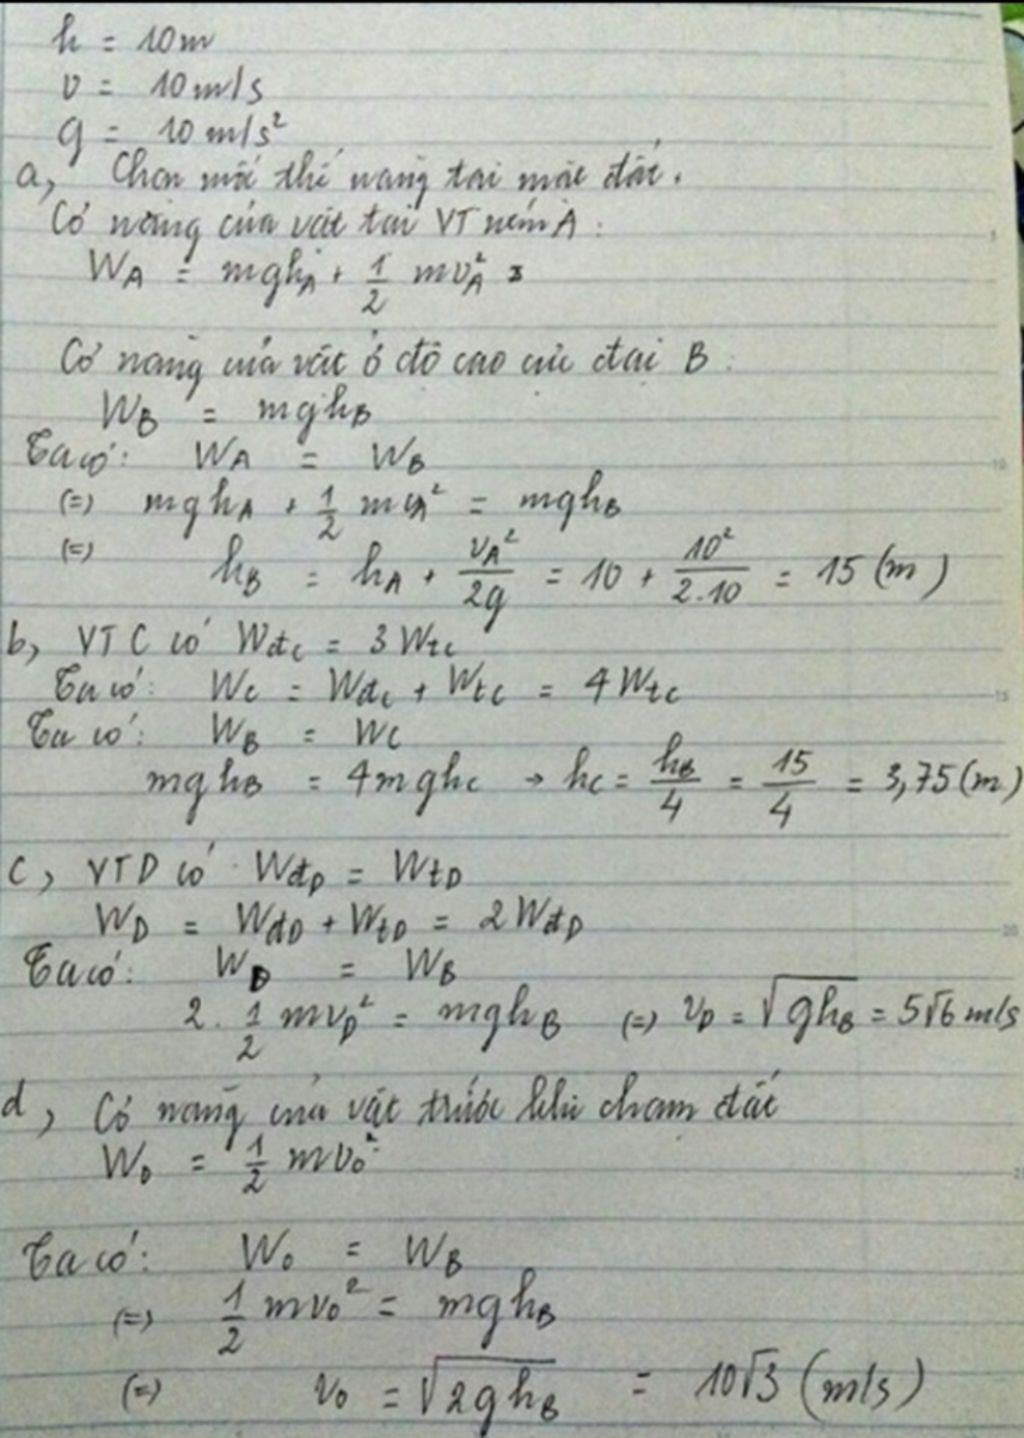 h = 10m
v = 10 m/s
g = 10 m/s²
a, Chọn mốc thế năng tại mặt đất.
Cơ năng của vật tại VT ném A :
W_A = mgh_A + 1/2 mv_A² =
Cơ năng của vật ở độ cao cực đại B :
W_B = mgh_B
Ta có: W_A = W_B
(=) mgh_A + 1/2 mv_A² = mgh_B
(=) h_B = h_A + v_A²/2g = 10 + 10²/2.10 = 15 (m)
b, VT C có Wđ_C = 3 Wt_C
Ta có: W_C = Wđ_C + Wt_C = 4 Wt_C
Ta có: W_B = W_C
mgh_B = 4mgh_C → h_C = h_B/4 = 15/4 = 3,75 (m)
c, VT D có Wđ_D = Wt_D
W_D = Wđ_D + Wt_D = 2 Wđ_D
Ta có: W_D = W_B
2. 1/2 mv_D² = mgh_B (=) v_D = √gh_B = 5√6 m/s
d, Cơ năng của vật trước khi chạm đất
W_0 = 1/2 mv_0²
Ta có: W_0 = W_B
(=) 1/2 mv_0² = mgh_B
(=) v_0 = √2gh_B = 10√3 (m/s)